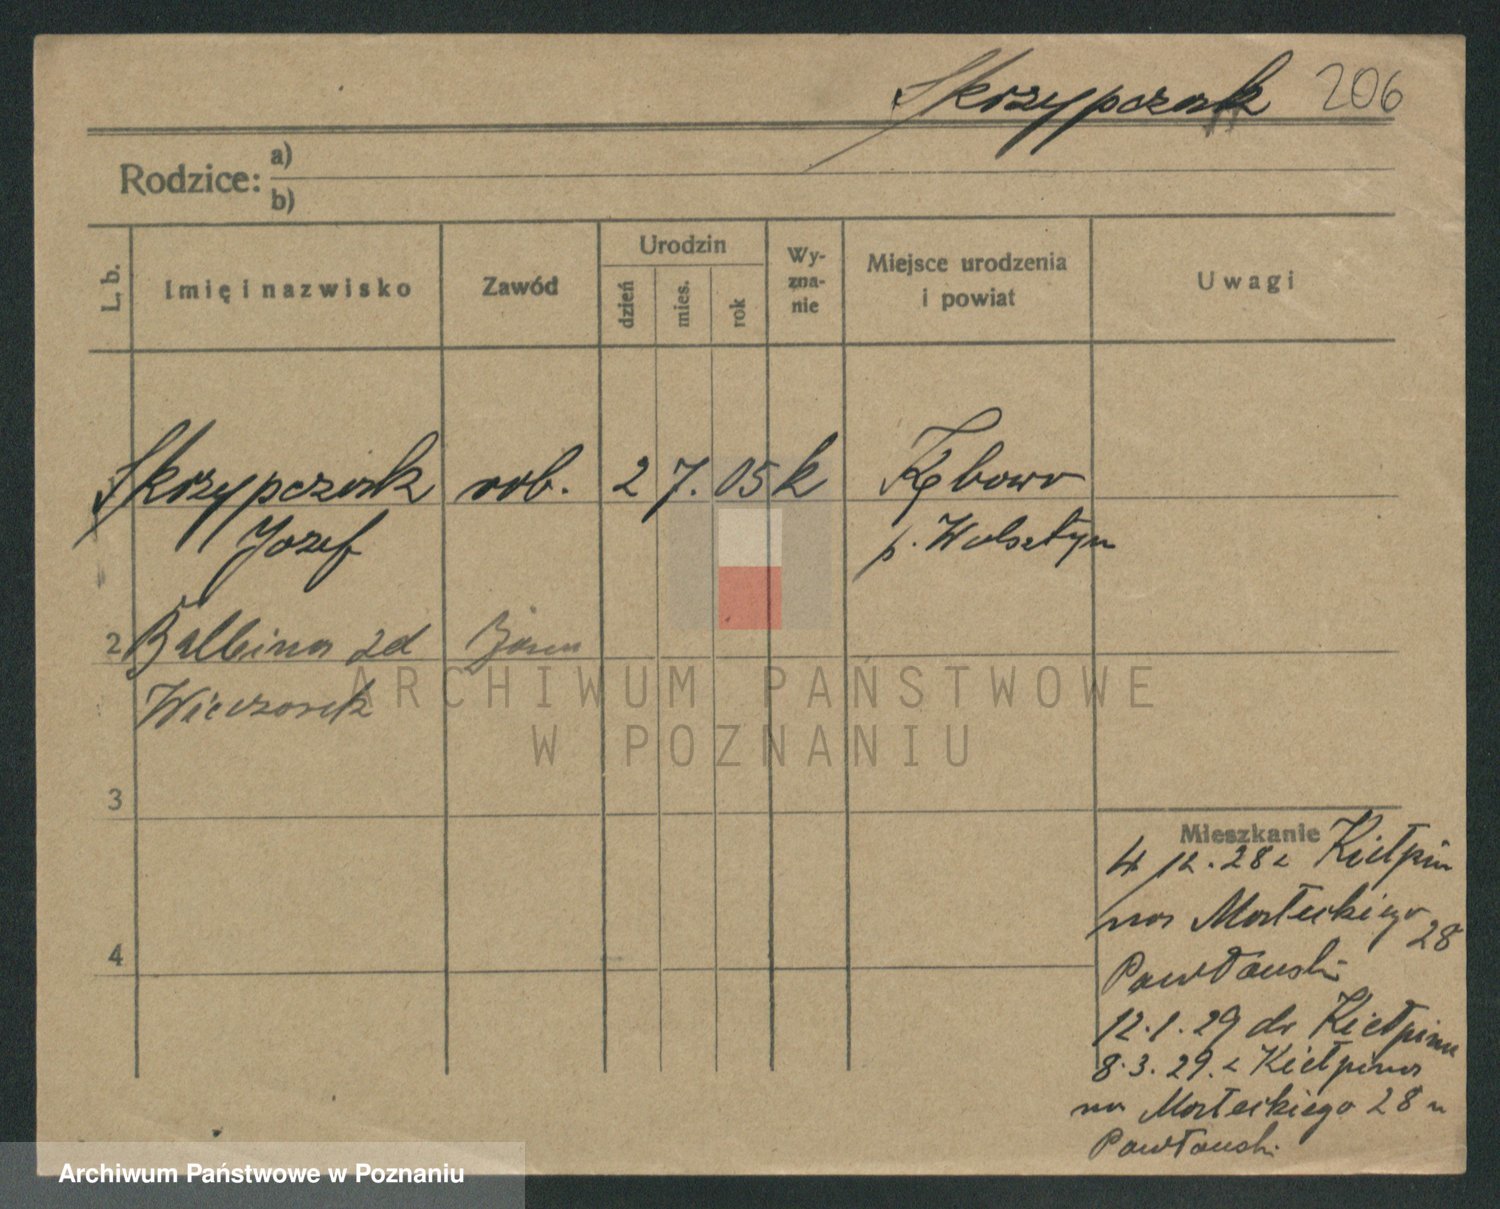 Skrzypczak 206
Rodzice: a)
b)
L. b.
Imię i nazwisko
Zawód
Urodzin
dzień
mies.
rok
Wy-
zna-
nie
Miejsce urodzenia
i powiat
Uwagi
Skrzypczak rob. 2 7. 05 k Kębowo
Józef p. Wolsztyn
2 Balbina zd
Wieczorek
3
4
Mieszkanie
4/12.28 z Kiełpin
na Małeckiego 28
Pawłowski
12.1.29 do Kiełpina
8.3.29. z Kiełpina
na Małeckiego 28 u
Pawłowski
ARCHIWUM PAŃSTWOWE
W POZNANIU
Archiwum Państwowe w Poznaniu